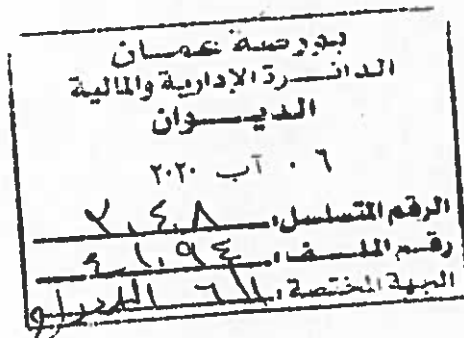 بورصة عمان
الدائرة الإدارية والمالية
الديوان
٠٦ آب ٢٠٢٠
الرقم المتسلسل: ٢٤٠٨
رقم الملف: ٤١٠٩٤
الجهة المختصة: